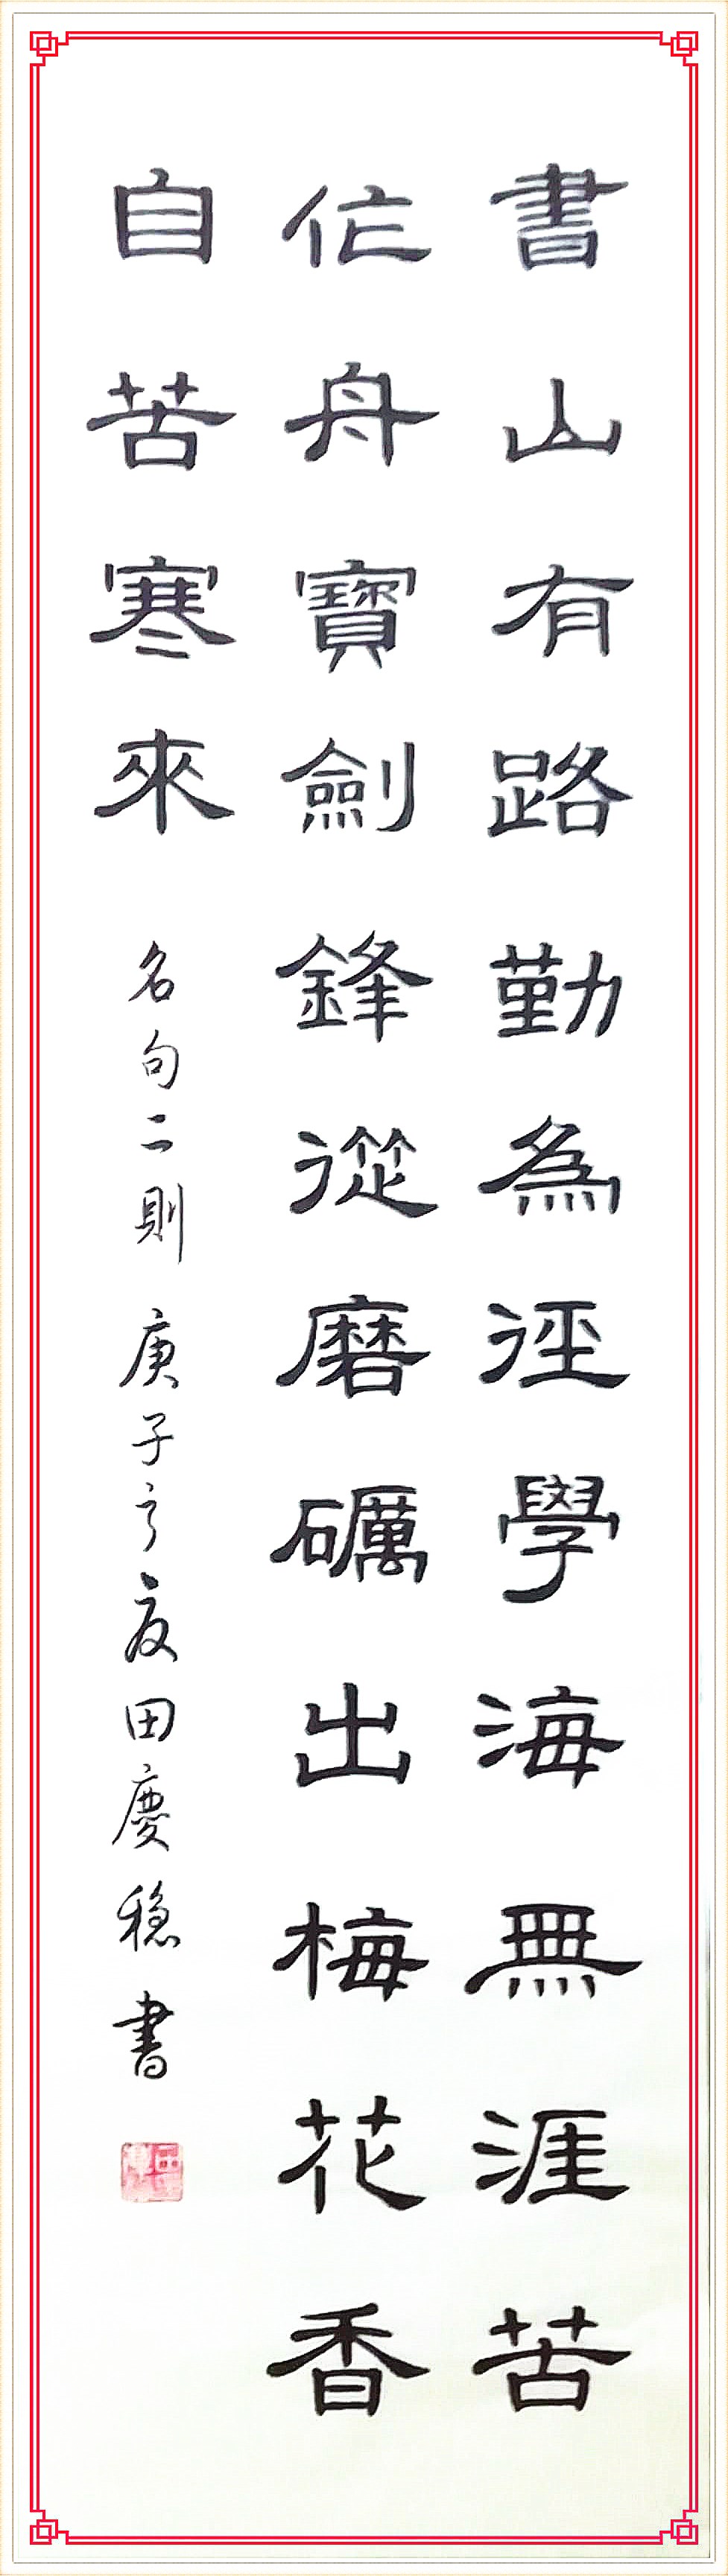 書山有路勤為徑學海無涯苦
作舟寶劍鋒從磨礪出梅花香
自苦寒來
名句二則 庚子之夏田慶穩書